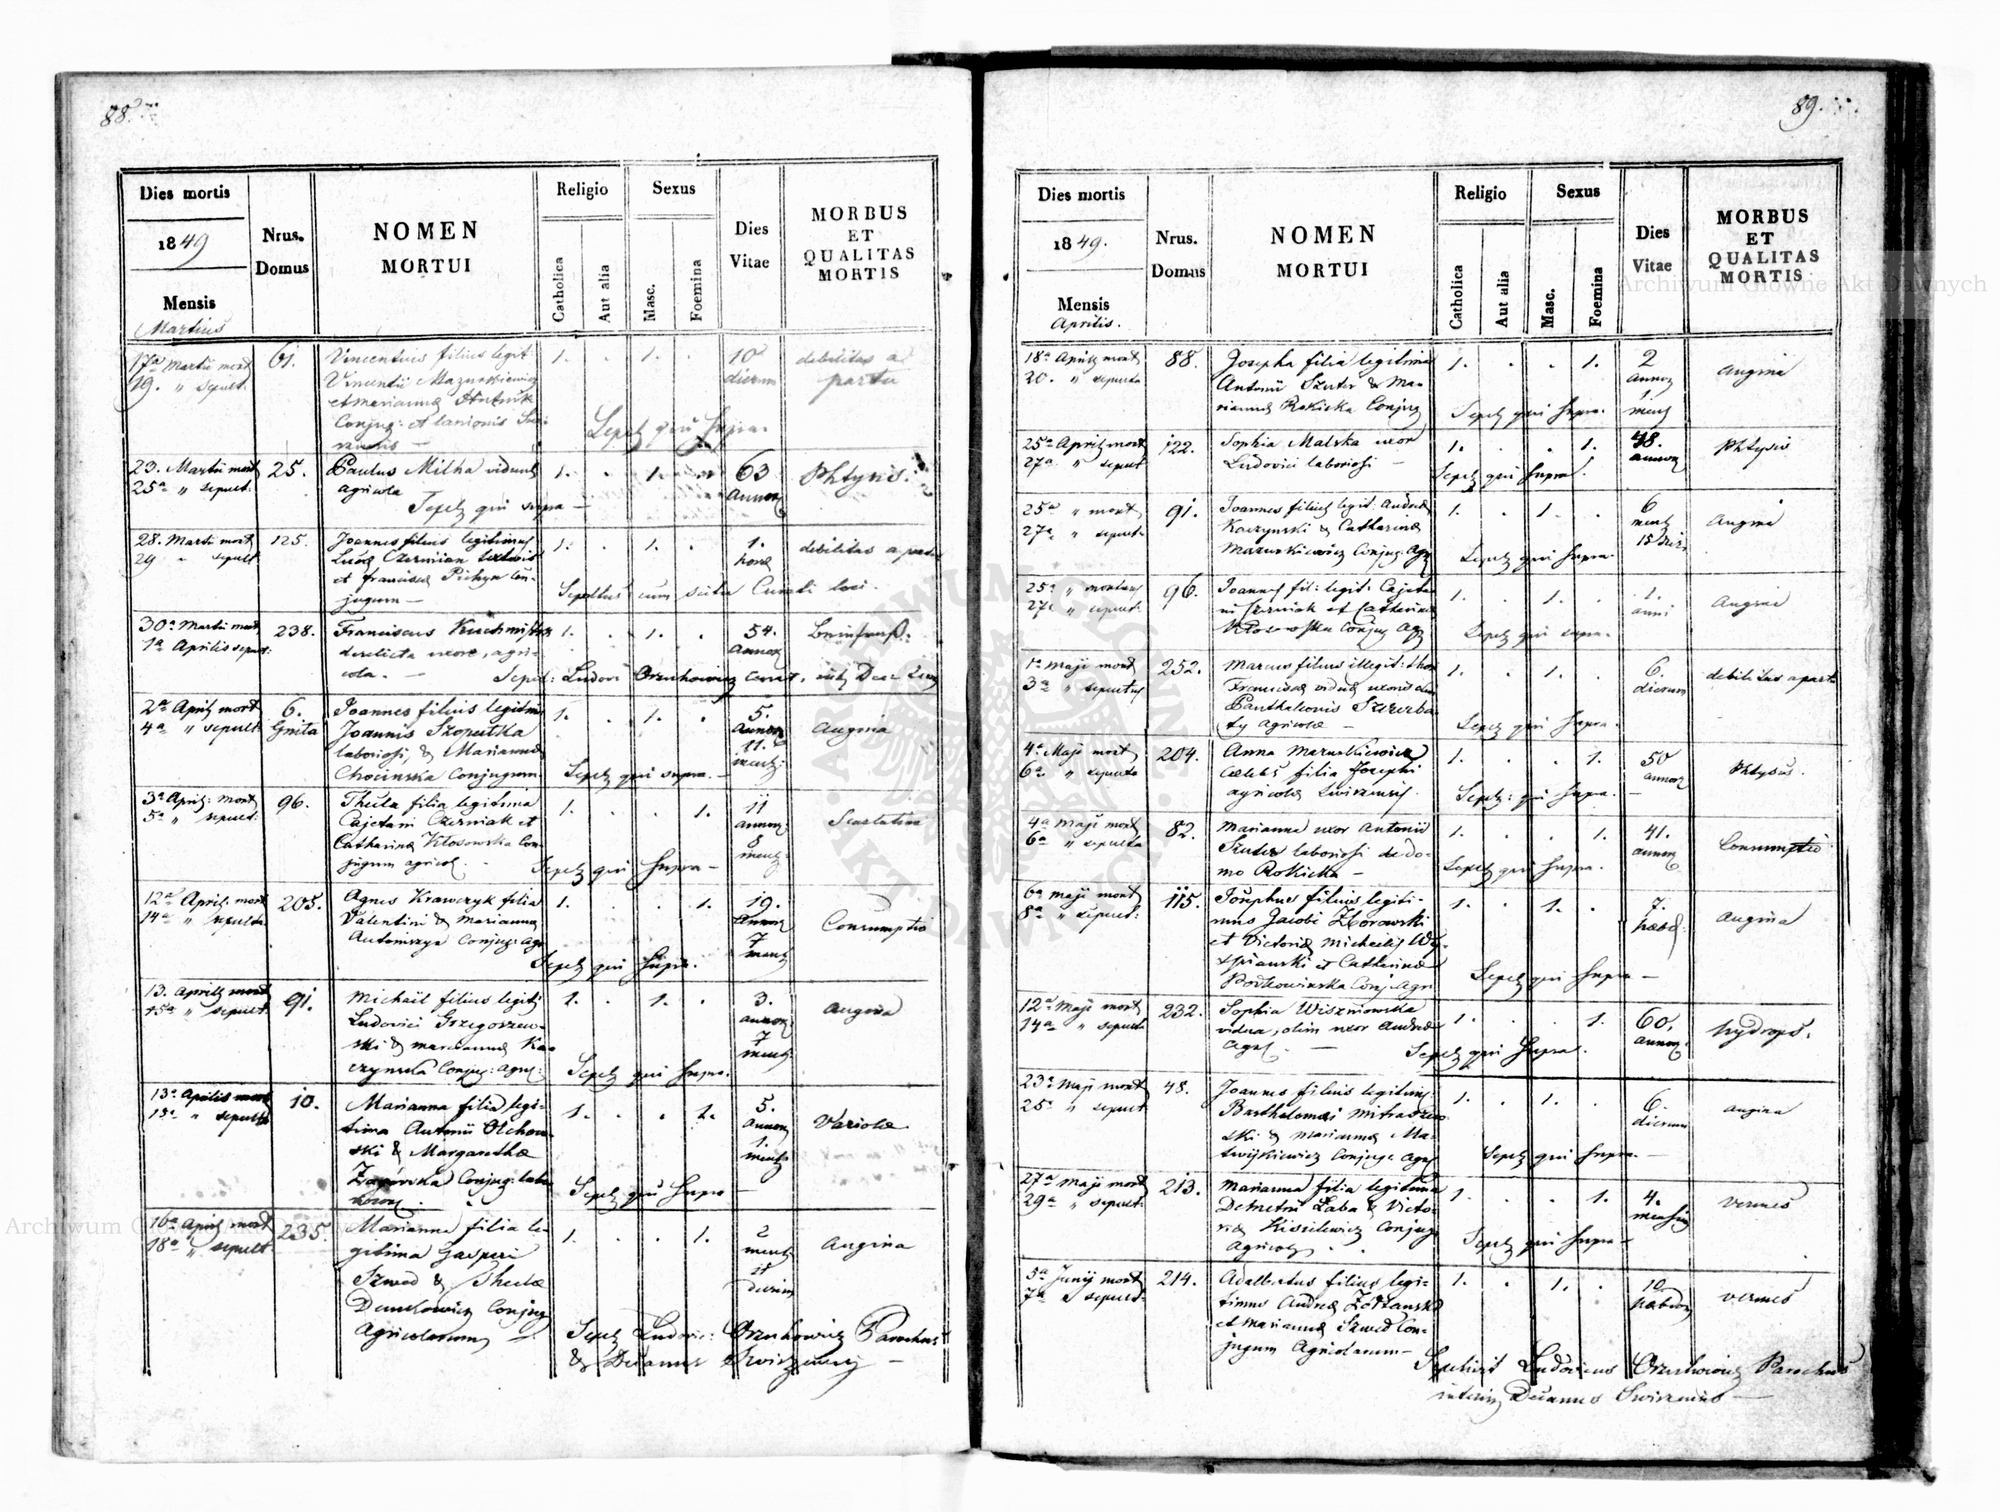 88.
Dies mortis
1849
Mensis
Martius
Nrus.
Domus
NOMEN
MORTUI
Religio
Catholica
Aut alia
Sexus
Masc.
Foemina
Dies
Vitae
MORBUS
ET
QUALITAS
MORTIS
17a Martii mort
19. " sepult.
61.
Vincentius filius legit:
Vincentii Mazurkiewicz
et Mariannae
Conjug: et lanionis
1. . 1. .
10
dierum
debilitas a
partu
Sepel: qui supra.
23. Martii mort
25a " sepult.
25.
Paulus Milha viduus
agricola
1. . 1. .
63
annor
Phtysis.
Sepel: qui supra —
28. Martii mort
29 " sepult
125.
Joannes filius legitimus
Lucae Czerniian textoris
et Franciscae Pichyn Con-
jugum —
1. . 1. .
1.
hora
debilitas a partu
Sepultus cum scitu Curati loci.
30a Martii mort
1a Aprilis sepult:
238.
Franciscus
derelicta uxore, agri-
cola. —
1. . 1. .
54.
annor
Sepel: Ludovi Orzechowicz
2a April mort
4a " sepult.
6.
Gnita
Joannes filius legitimus
Joannis Szoputka
laboriosi, & Mariannae
Chocinska Conjugum
1. . 1. .
5.
annor
11.
mens
Angina
Sepel: qui supra. —
3a April: mort
5a " sepult.
96.
Thecla filia legitima
Cajetani Czerniak et
Catharinae Kłosowska Con-
jugum agricol.
1. . . 1.
11
annor
8
mens
Scarlatina
Sepel: qui supra —
12a April. mort
14a " sepulta
205.
Agnes Krawczyk filia
Valentini & Mariannae
Antoniszyn Conjug: Agr
1. . . 1.
19.
annor
7
mens
Consumptio
Sepel: qui supra.
13. Aprilis mort
15a " sepult.
91.
Michaël filius legit:
Ludovici Grzegorzew-
ski & Mariannae Ka-
czynska Conjug: agr:
1. . 1. .
3.
annor
7
mens
Angina
Sepel: qui supra.
13a Aprilis mort
15a " sepulta
10.
Marianna filia legi-
tima Antonii Olchow-
ski & Margarethae
Conjug: labo-
1. . . 1.
5.
annor
1.
mens
Variolae.
Sepel: qui supra —
16a April mort
18a " sepult.
235.
Marianna filia le-
gitima Gasperi
Szwed & Theclae
Conjug
Agricolarum
1. . . 1.
2
mens
et
dierum
Angina
Sepel: Ludovic: Orzechowicz Parochus
& Decanus
89.
Dies mortis
1849.
Mensis
Aprilis.
Nrus.
Domus
NOMEN
MORTUI
Religio
Catholica
Aut alia
Sexus
Masc.
Foemina
Dies
Vitae
MORBUS
ET
QUALITAS
MORTIS
18a Aprilis mort
20. " sepulta
88.
Josepha filia legitima
Antonii Szuter & Ma-
riannae Rokicka Conjug
1. . . 1.
2
annor
1
mens
Angina
Sepel: qui supra.
25a Aprilis mort
27a " sepult
122.
Sophia Malska uxor
Ludovici laboriosi —
1. . . 1.
48.
annor
Phtysis
Sepel: qui supra.
25a " mort
27a " sepult.
91.
Joannes filius legit: Andreae
Kaczynski & Catharinae
Mazurkiewicz Conjug: Agr
1. . 1. .
6
mens
15 dier:
Angina
Sepel: qui supra
25a " mortuus
27a " sepult.
96.
Joannes fil: legit: Cajeta-
ni Czerniak et Catharinae
Kłosowska Conjug Agr
1. . 1. .
1.
anni
Angina
Sepel: qui supra.
1a Maji mort
3a " sepultus
252.
Marcus filius illegit: thor
Franciscae viduae uxoris olim
Panthaleonis Szczerba-
ty agricolae —
1. . 1. .
6.
dierum
debilitas a partu
Sepel: qui supra.
4a Maji mort
6a " sepulta
204.
Anna Mazurkiewicz
caelebs filia Josephi
agricolae
1. . . 1.
50
annor
Phtysis.
Sepel: qui supra. —
4a Maji mort
6a " sepulta
82.
Marianna uxor Antonii
Szuter laboriosi de do-
mo Rokicka —
1. . . 1.
41.
annor
Consumptio
Sepel: qui supra.
6a Maji mort
8a " sepult:
115.
Josephus filius legiti-
mus Jacobi Zborowski
et Victoriae Michaelis Wy-
spianski et Catharinae
Conj: Agr
1. . 1. .
7.
hebd:
Angina
Sepel: qui supra —
12a Maji mort
14a " sepulta
232.
Sophia Wiszniowska
vidua, olim uxor Andreae
Agr. —
1. . . 1.
60.
annor.
hydrops.
Sepel: qui supra.
23a Maji mort
25a " sepult
48.
Joannes filius legitimus
Bartholomaei Mitraszew-
ski & Mariannae Ma-
Conjug: Agr
1. . 1. .
6.
dierum
angina
Sepel: qui supra. —
27a Maji mort
29a " sepult.
213.
Marianna filia legitima
Demetrii Łaba & Victo-
riae Kisielewicz Conjug
Agricol
1. . . 1.
4.
mensium
vermes
Sepel: qui supra —
5a Junij mort
7a " sepult.
214.
Adalbertus filius legi-
timus Andreae
et Mariannae Szwed Con-
jugum Agricolarum —
1. . 1. .
10
hebdom
vermes
Sepelivit Ludovicus Orzechowicz Parochus
interim Decanus —
ARCHIWUM GŁÓWNE AKT DAWNYCH
Archiwum Główne Akt Dawnych